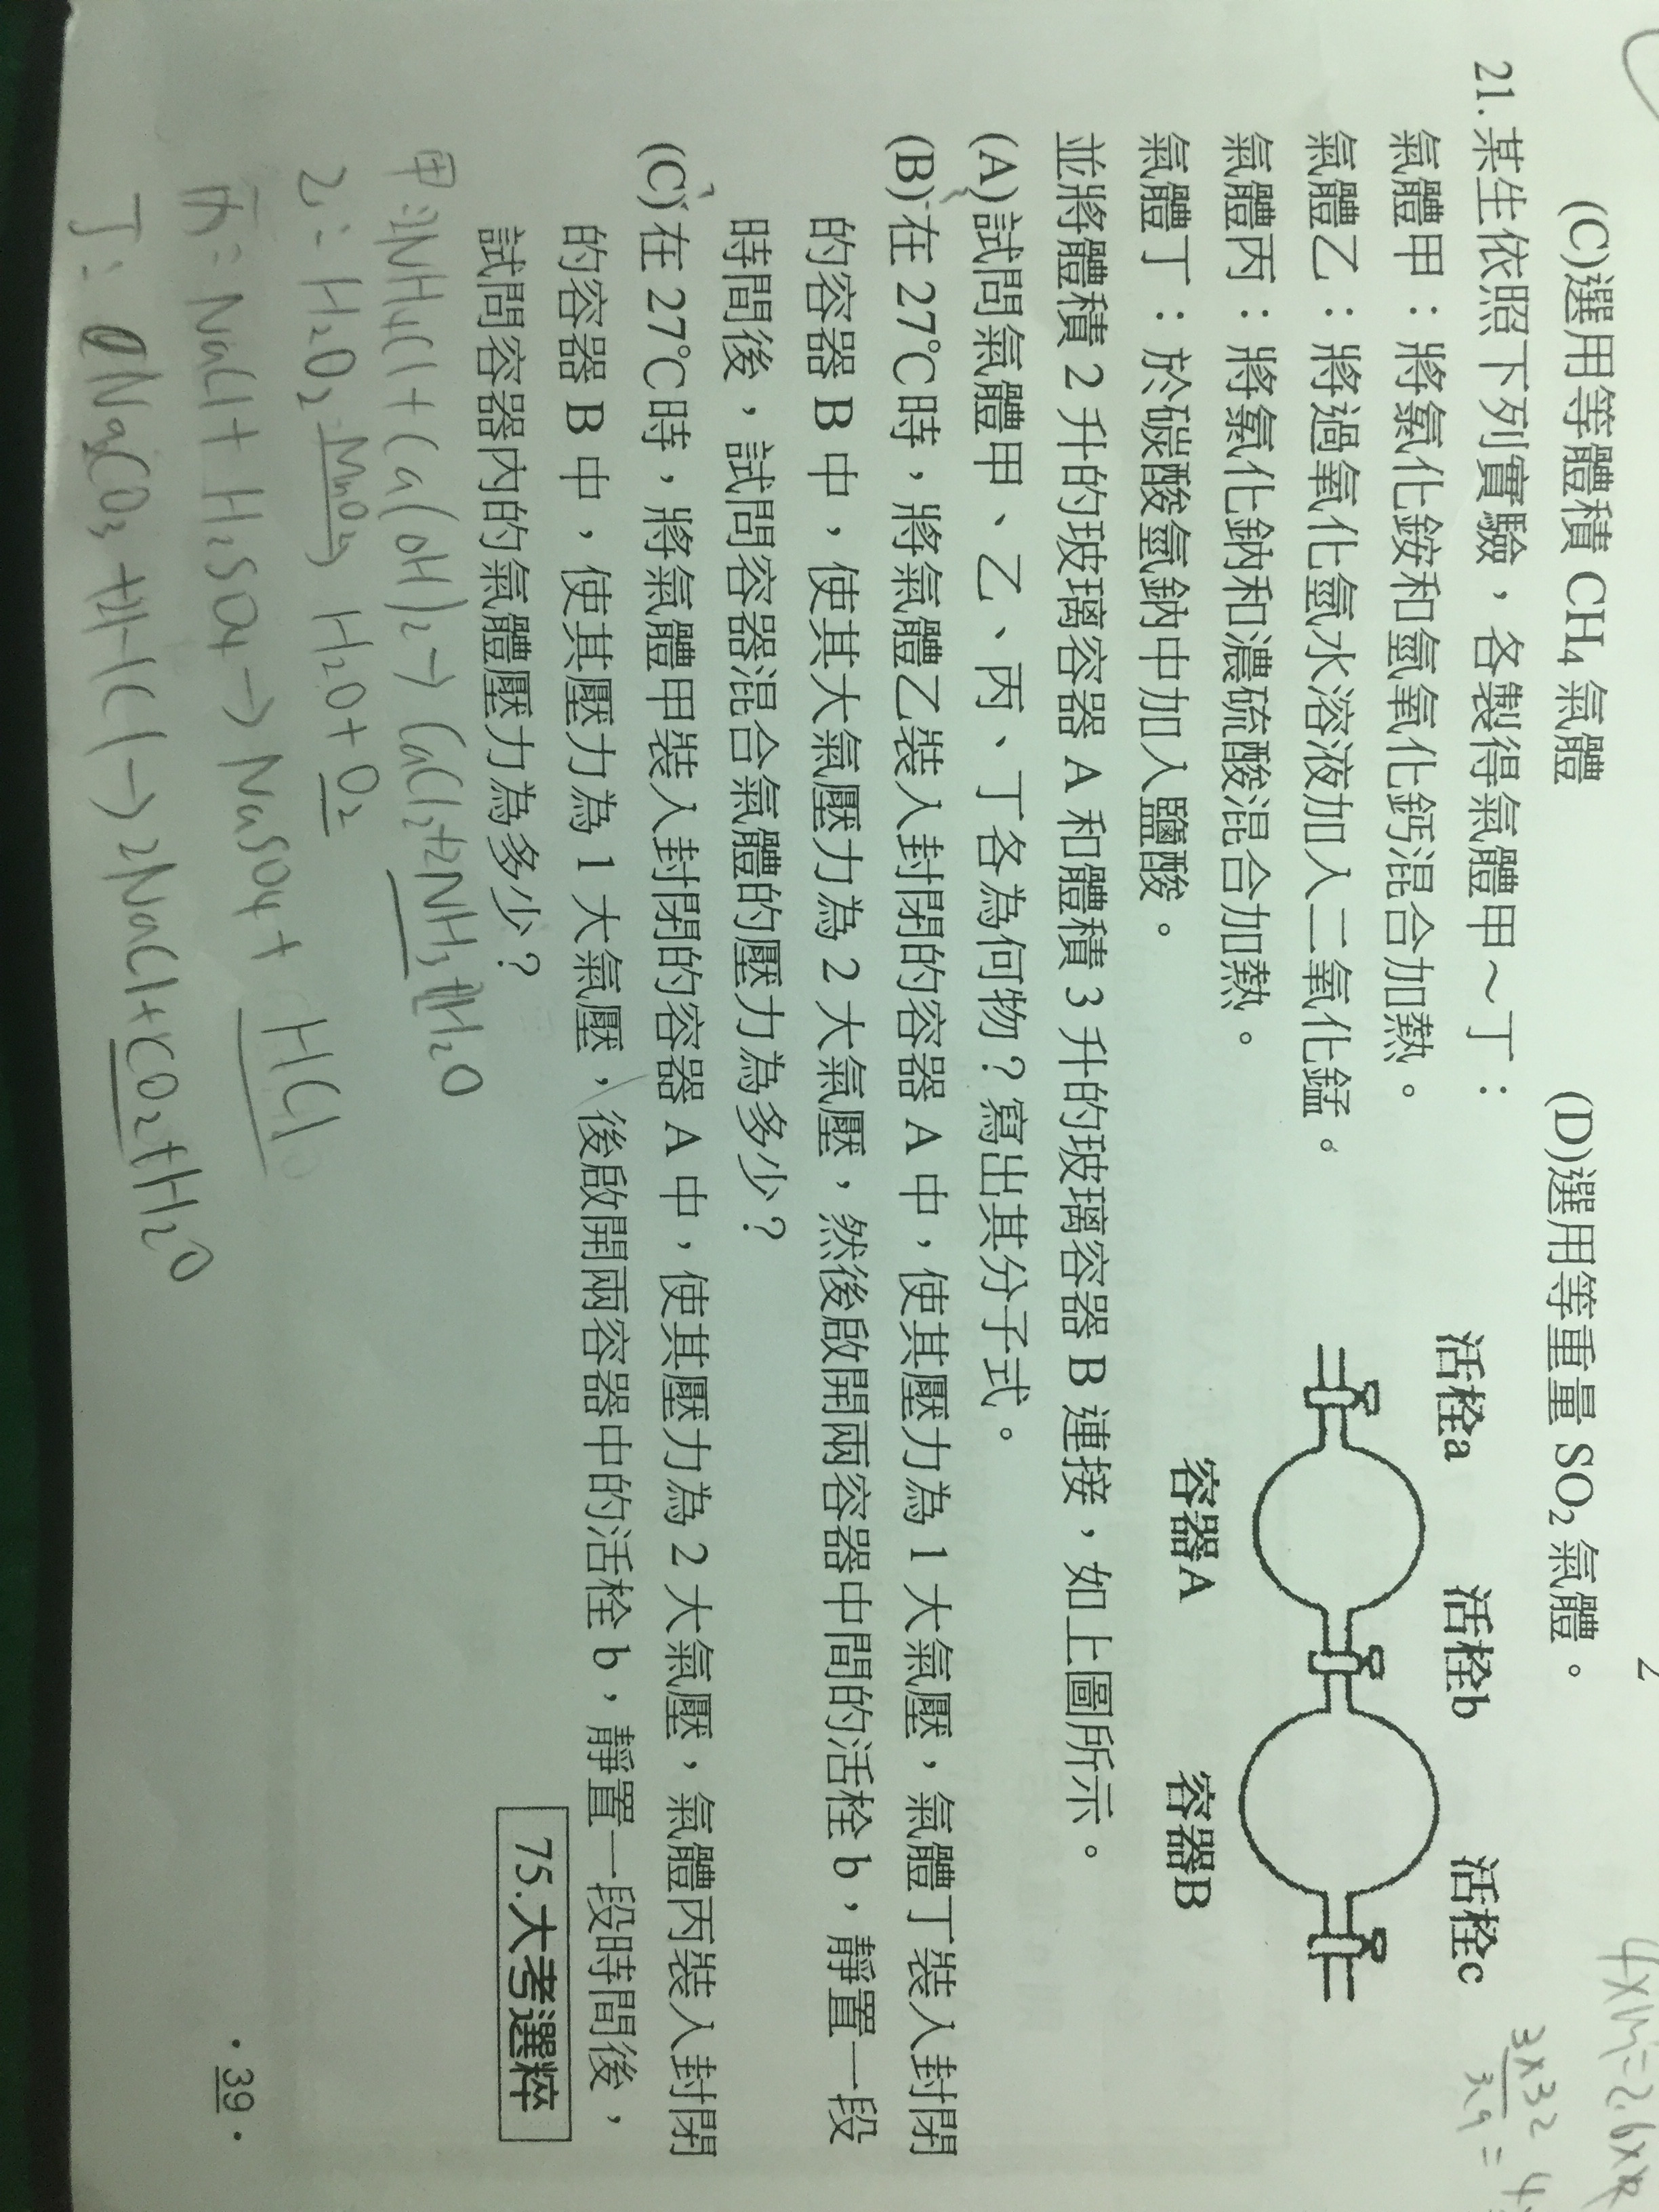 2
(C)選用等體積 CH₄ 氣體 (D)選用等重量 SO₂ 氣體。
3×32
21.某生依照下列實驗，各製得氣體甲～丁：
氣體甲：將氯化銨和氫氧化鈣混合加熱。
氣體乙：將過氧化氫水溶液加入二氧化錳。
氣體丙：將氯化鈉和濃硫酸混合加熱。
氣體丁：於碳酸氫鈉中加入鹽酸。
活栓a 活栓b 活栓c
容器A 容器B
並將體積 2 升的玻璃容器 A 和體積 3 升的玻璃容器 B 連接，如上圖所示。
(A)試問氣體甲、乙、丙、丁各為何物？寫出其分子式。
(B)在 27℃時，將氣體乙裝入封閉的容器 A 中，使其壓力為 1 大氣壓，氣體丁裝入封閉
的容器 B 中，使其大氣壓力為 2 大氣壓，然後啟開兩容器中間的活栓 b，靜置一段
時間後，試問容器混合氣體的壓力為多少？
(C)在 27℃時，將氣體甲裝入封閉的容器 A 中，使其壓力為 2 大氣壓，氣體丙裝入封閉
的容器 B 中，使其壓力為 1 大氣壓，後啟開兩容器中的活栓 b，靜置一段時間後，
試問容器內的氣體壓力為多少？
75.大考選粹
甲：2NH₄Cl + Ca(OH)₂ → CaCl₂+2NH₃+2H₂O
乙：H₂O₂ MnO₂→ H₂O + O₂
丙：NaCl + H₂SO₄ → NaSO₄ + HCl
丁：Na₂CO₃ + 2HCl → 2NaCl + CO₂ + H₂O
·39·